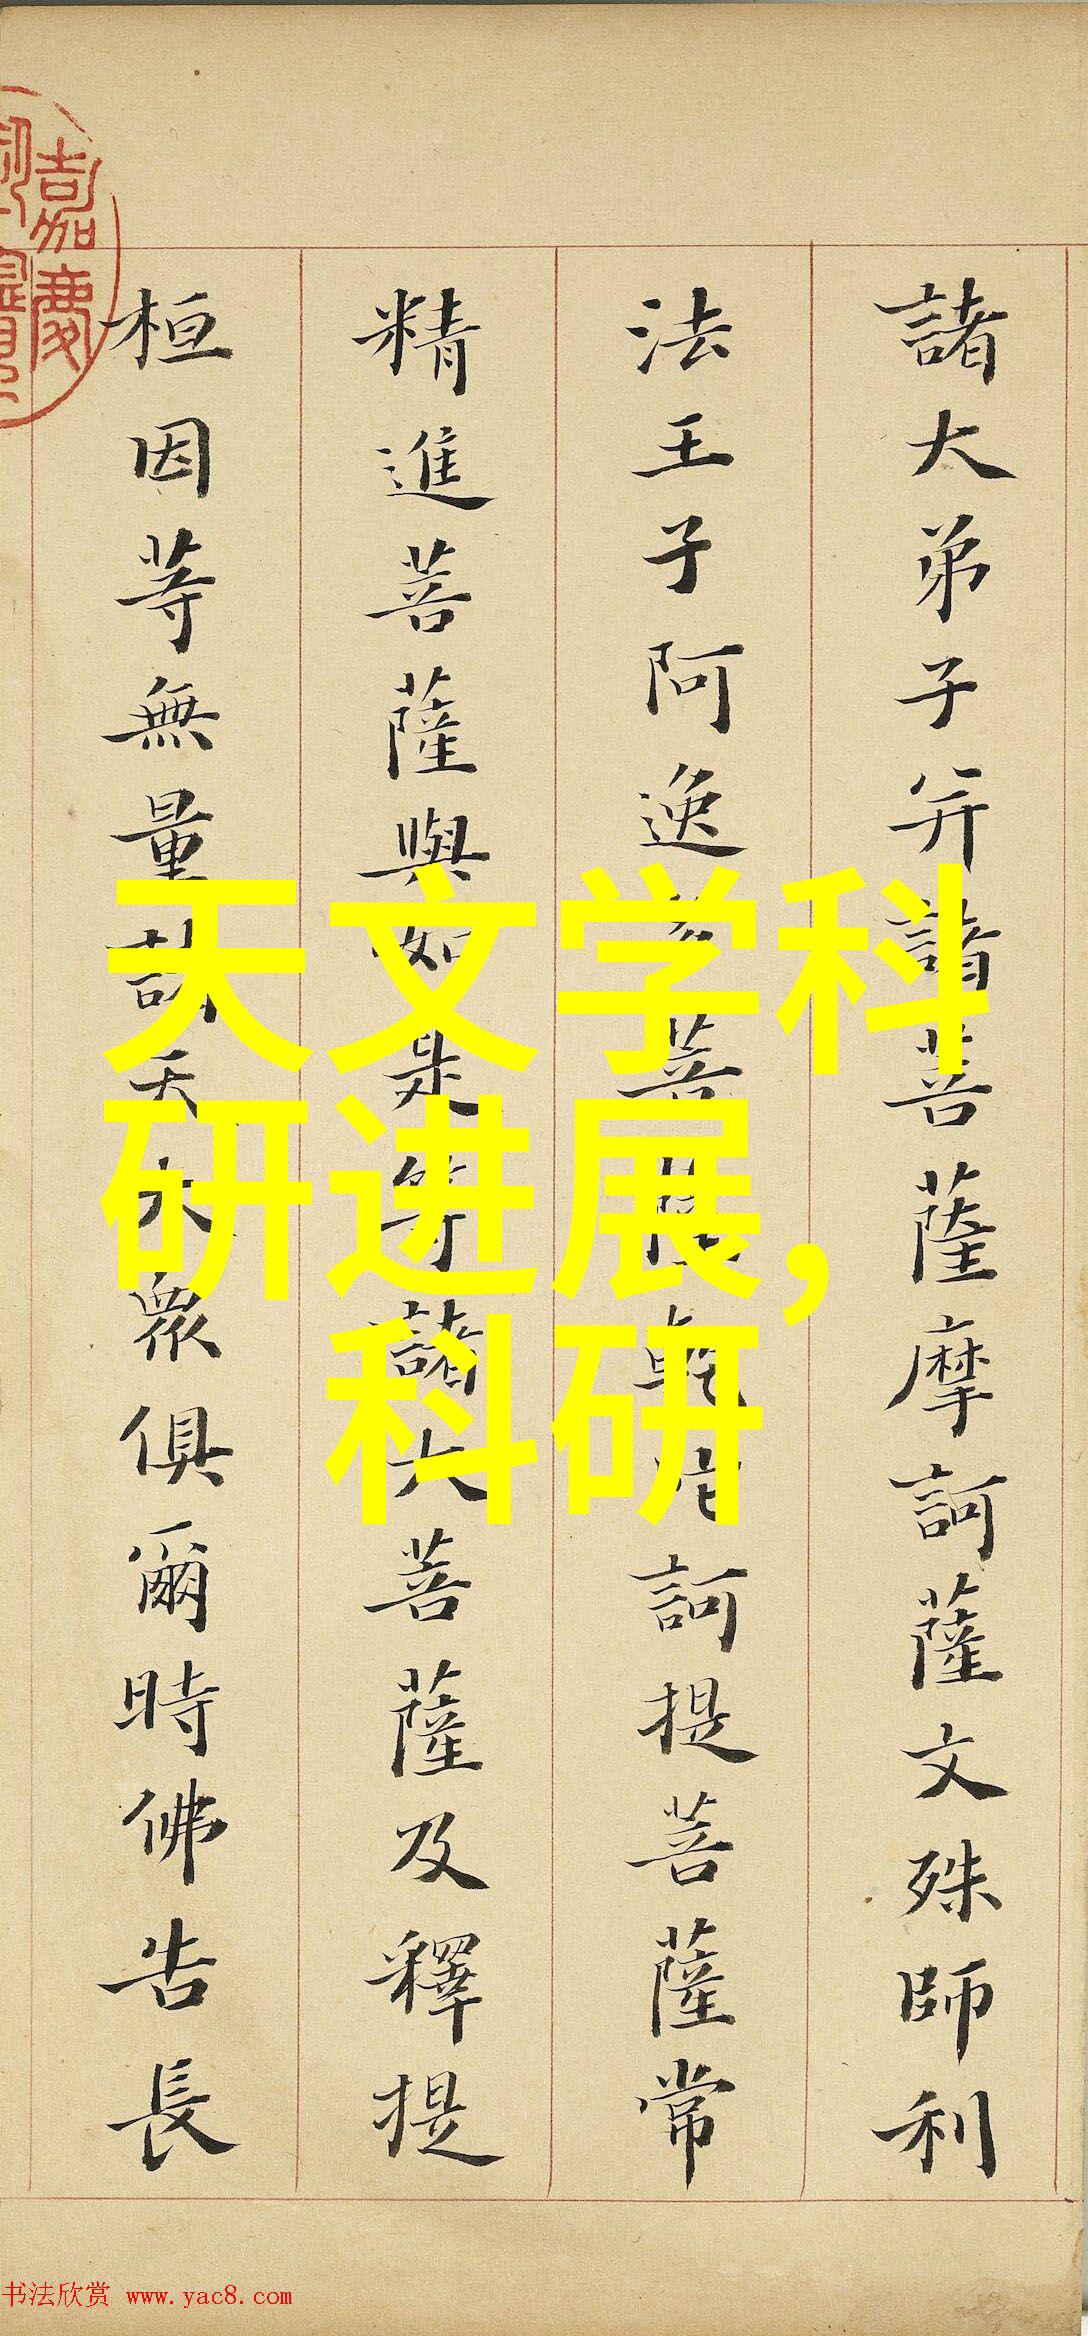 諸大弟子并諸菩薩摩訶薩文殊師利
法王子阿逸多菩薩乾陀訶提菩薩常
精進菩薩與如是等諸大菩薩及釋提
桓因等無量諸天大眾俱爾時佛告長
嘉慶
天文学科
研进展,
科研
书法欣赏 www.yac8.com